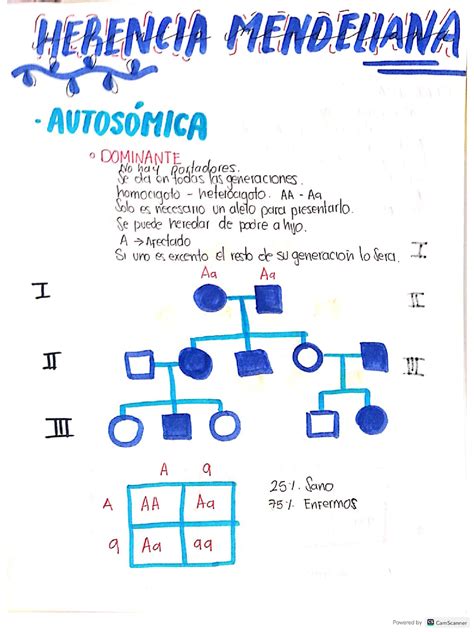 HERENCIA MENDELIANA
· AUTOSÓMICA
DOMINANTE
No hay portadores.
Se da en todas las generaciones.
homocigoto - heterocigoto. AA - Aa
Solo es necesario un alelo para presentarlo.
Se puede heredar de padre a hijo.
A → Afectado
Si uno es excento el resto de su generacion lo sera.
I.
Aa Aa
I II
II III
III
A a
A AA Aa
a Aa aa
25%. Sano
75%. Enfermos
Powered by CS CamScanner